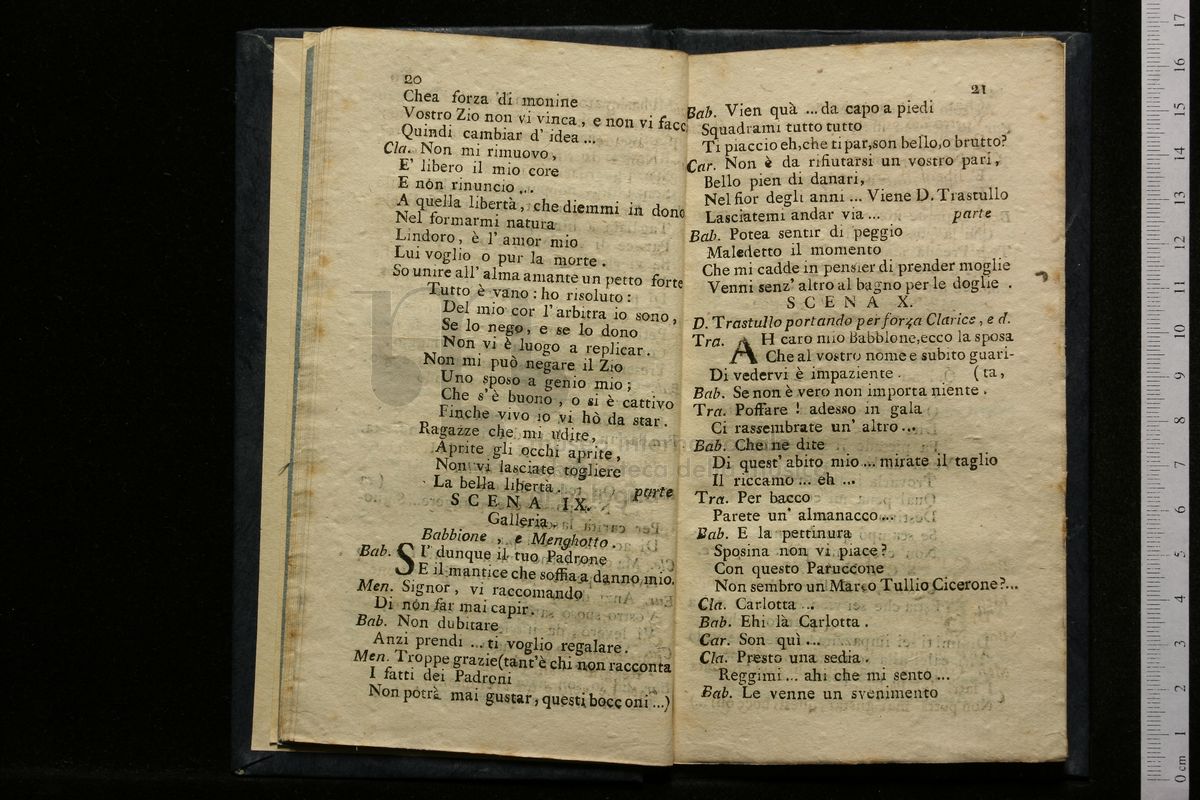 20
Chea forza di monine
Vostro Zio non vi vinca, e non vi facc
Quindi cambiar d' idea ...
Cla. Non mi rimuovo,
E' libero il mio core
E non rinuncio ...
A quella libertà, che diemmi in dono
Nel formarmi natura
Lindoro, è l' amor mio
Lui voglio o pur la morte.
So unire all' alma amante un petto forte
Tutto è vano: ho risoluto:
Del mio cor l'arbitra io sono,
Se lo nego, e se lo dono
Non vi è luogo a replicar.
Non mi può negare il Zio
Uno sposo a genio mio;
Che s'è buono, o si è cattivo
Finche vivo io vi hò da star.
Ragazze che mi udite,
Aprite gli occhi aprite,
Non vi lasciate togliere
La bella libertà. parte
SCENA IX.
Galleria.
Babbione, e Menghotto.
Bab. SI' dunque il tuo Padrone
E il mantice che soffia a danno mio.
Men. Signor, vi raccomando
Di non far mai capir.
Bab. Non dubitare
Anzi prendi ... ti voglio regalare.
Men. Troppe grazie(tant'è chi non racconta
I fatti dei Padroni
Non potrà mai gustar, questi bocc oni ...)
21
Bab. Vien quà ... da capo a piedi
Squadrami tutto tutto
Ti piaccio eh,che ti par,son bello,o brutto?
Car. Non è da rifiutarsi un vostro pari,
Bello pien di danari,
Nel fior degli anni ... Viene D. Trastullo
Lasciatemi andar via ... parte
Bab. Potea sentir di peggio
Maledetto il momento
Che mi cadde in pensier di prender moglie
Venni senz' altro al bagno per le doglie.
SCENA X.
D. Trastullo portando per forza Clarice, e d.
Tra. AH caro mio Babblone,ecco la sposa
Che al vostro nome e subito guari-
Di vedervi è impaziente. (ta,
Bab. Se non è vero non importa niente.
Tra. Poffare ! adesso in gala
Ci rassembrate un' altro ...
Bab. Che ne dite
Di quest' abito mio ... mirate il taglio
Il riccamo ... eh ...
Tra. Per bacco
Parete un' almanacco ...
Bab. E la pettinura
Sposina non vi piace?
Con questo Paruccone
Non sembro un Marco Tullio Cicerone?...
Cla. Carlotta ...
Bab. Ehi là Carlotta.
Car. Son quì ...
Cla. Presto una sedia.
Reggimi ... ahi che mi sento ...
Bab. Le venne un svenimento